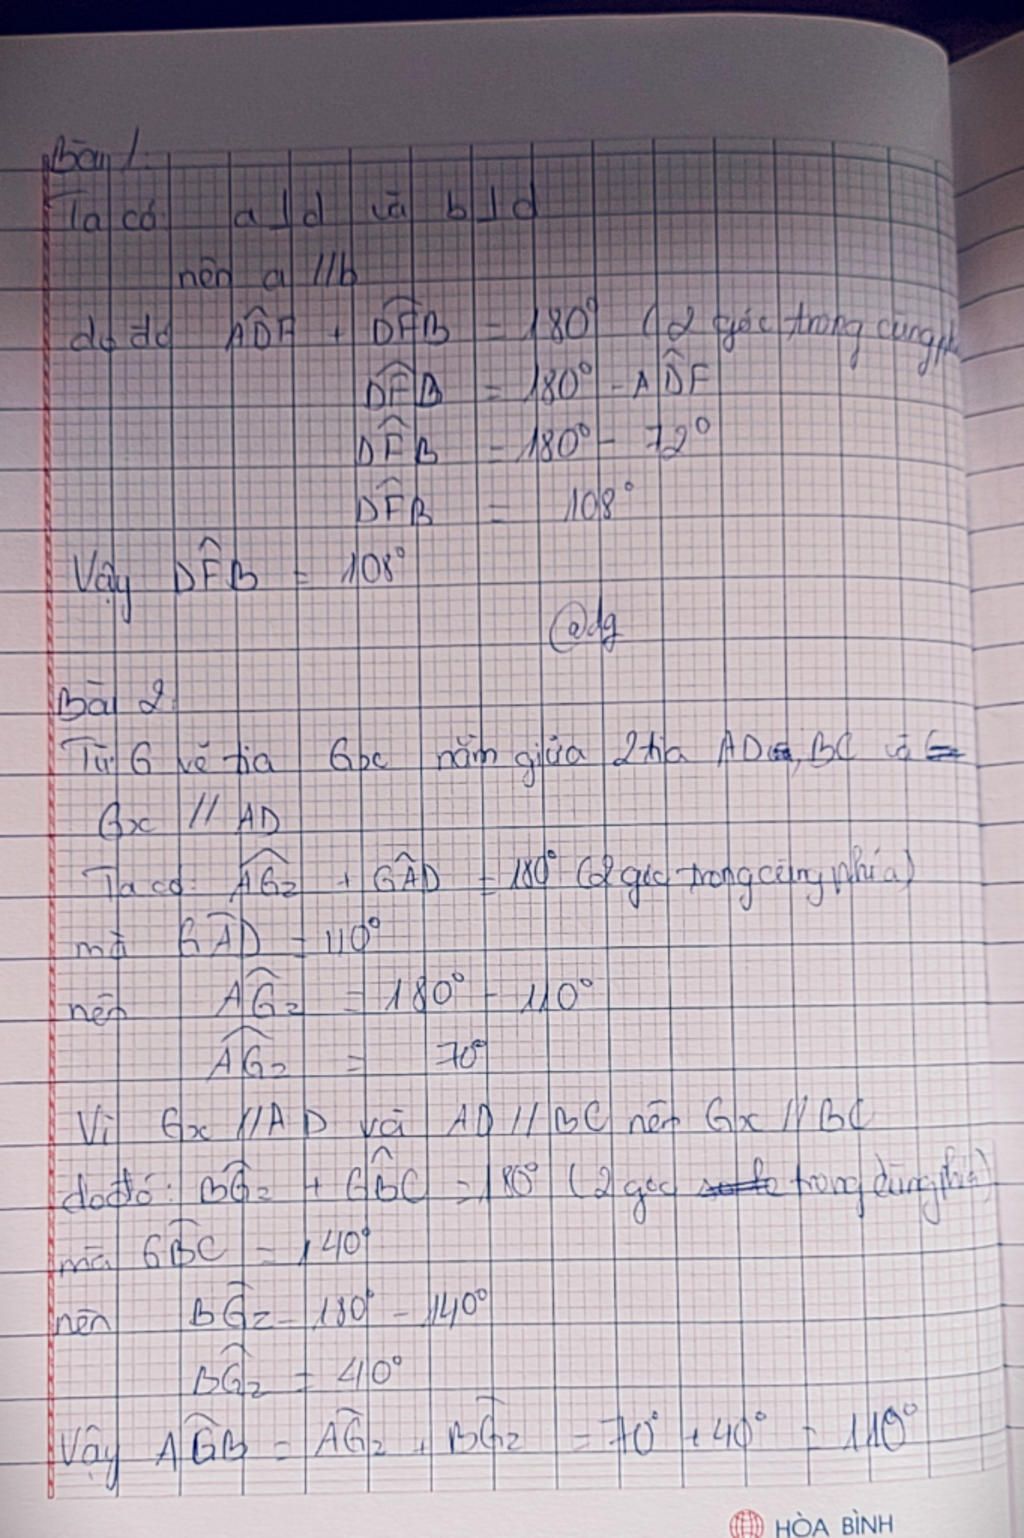 Bài 1.
Ta có a ⊥ d và b ⊥ d
nên a // b
do đó ADF + DFB = 180° (2 góc trong cùng
DFB = 180° - ADF
DFB = 180° - 72°
DFB = 108°
Vậy DFB = 108°
@dg
Bài 2.
Từ G vẽ tia Gx nằm giữa 2 tia AD, BC và
Gx // AD
Ta có: AGx + GAD = 180° (2 góc trong cùng phía)
mà GAD = 110°
nên AGx = 180° - 110°
AGx = 70°
Vì Gx // AD và AD // BC nên Gx // BC
do đó: BGx + GBC = 180° (2 góc trong cùng phía)
mà GBC = 140°
nên BGx = 180° - 140°
BGx = 40°
Vậy AGB = AGx + BGx = 70° + 40° = 110°
HÒA BÌNH